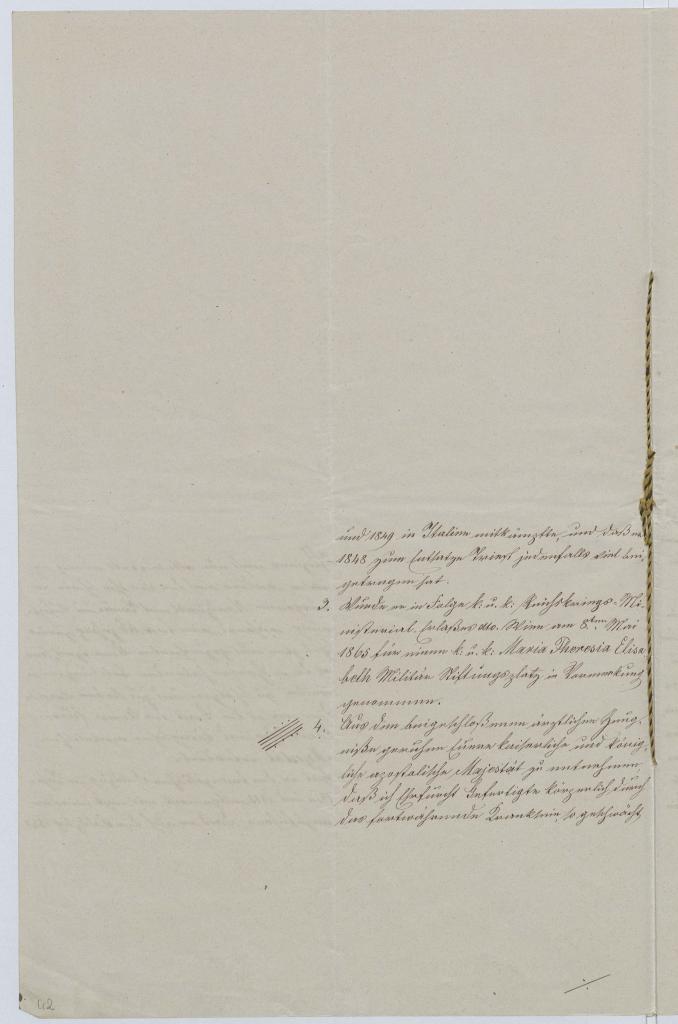 und 1849 in Italien mitkämpfte, und daß er
1848 zum Entsatze Triest jedenfalls viel bei¬
getragen hat.
3. Wurde er in Folge k: u. k: Reichskriegs-Mi¬
nisterial-Erlaßes dto. Wien am 8ten Mai
1865 für einen k: u. k: Maria Theresia Elisa
beth Militär Stiftungsplatz in Vormerkung
genommen.
4. Aus dem beigeschloßenen ärztlichen Zeug¬
niße geruhen Euere kaiserliche und könig¬
liche apostolische Majestät zu entnehmen,
daß ich Ehrfurcht Gefertigte körperlich durch
das fortwährende Kranksein, so geschwächt,
42